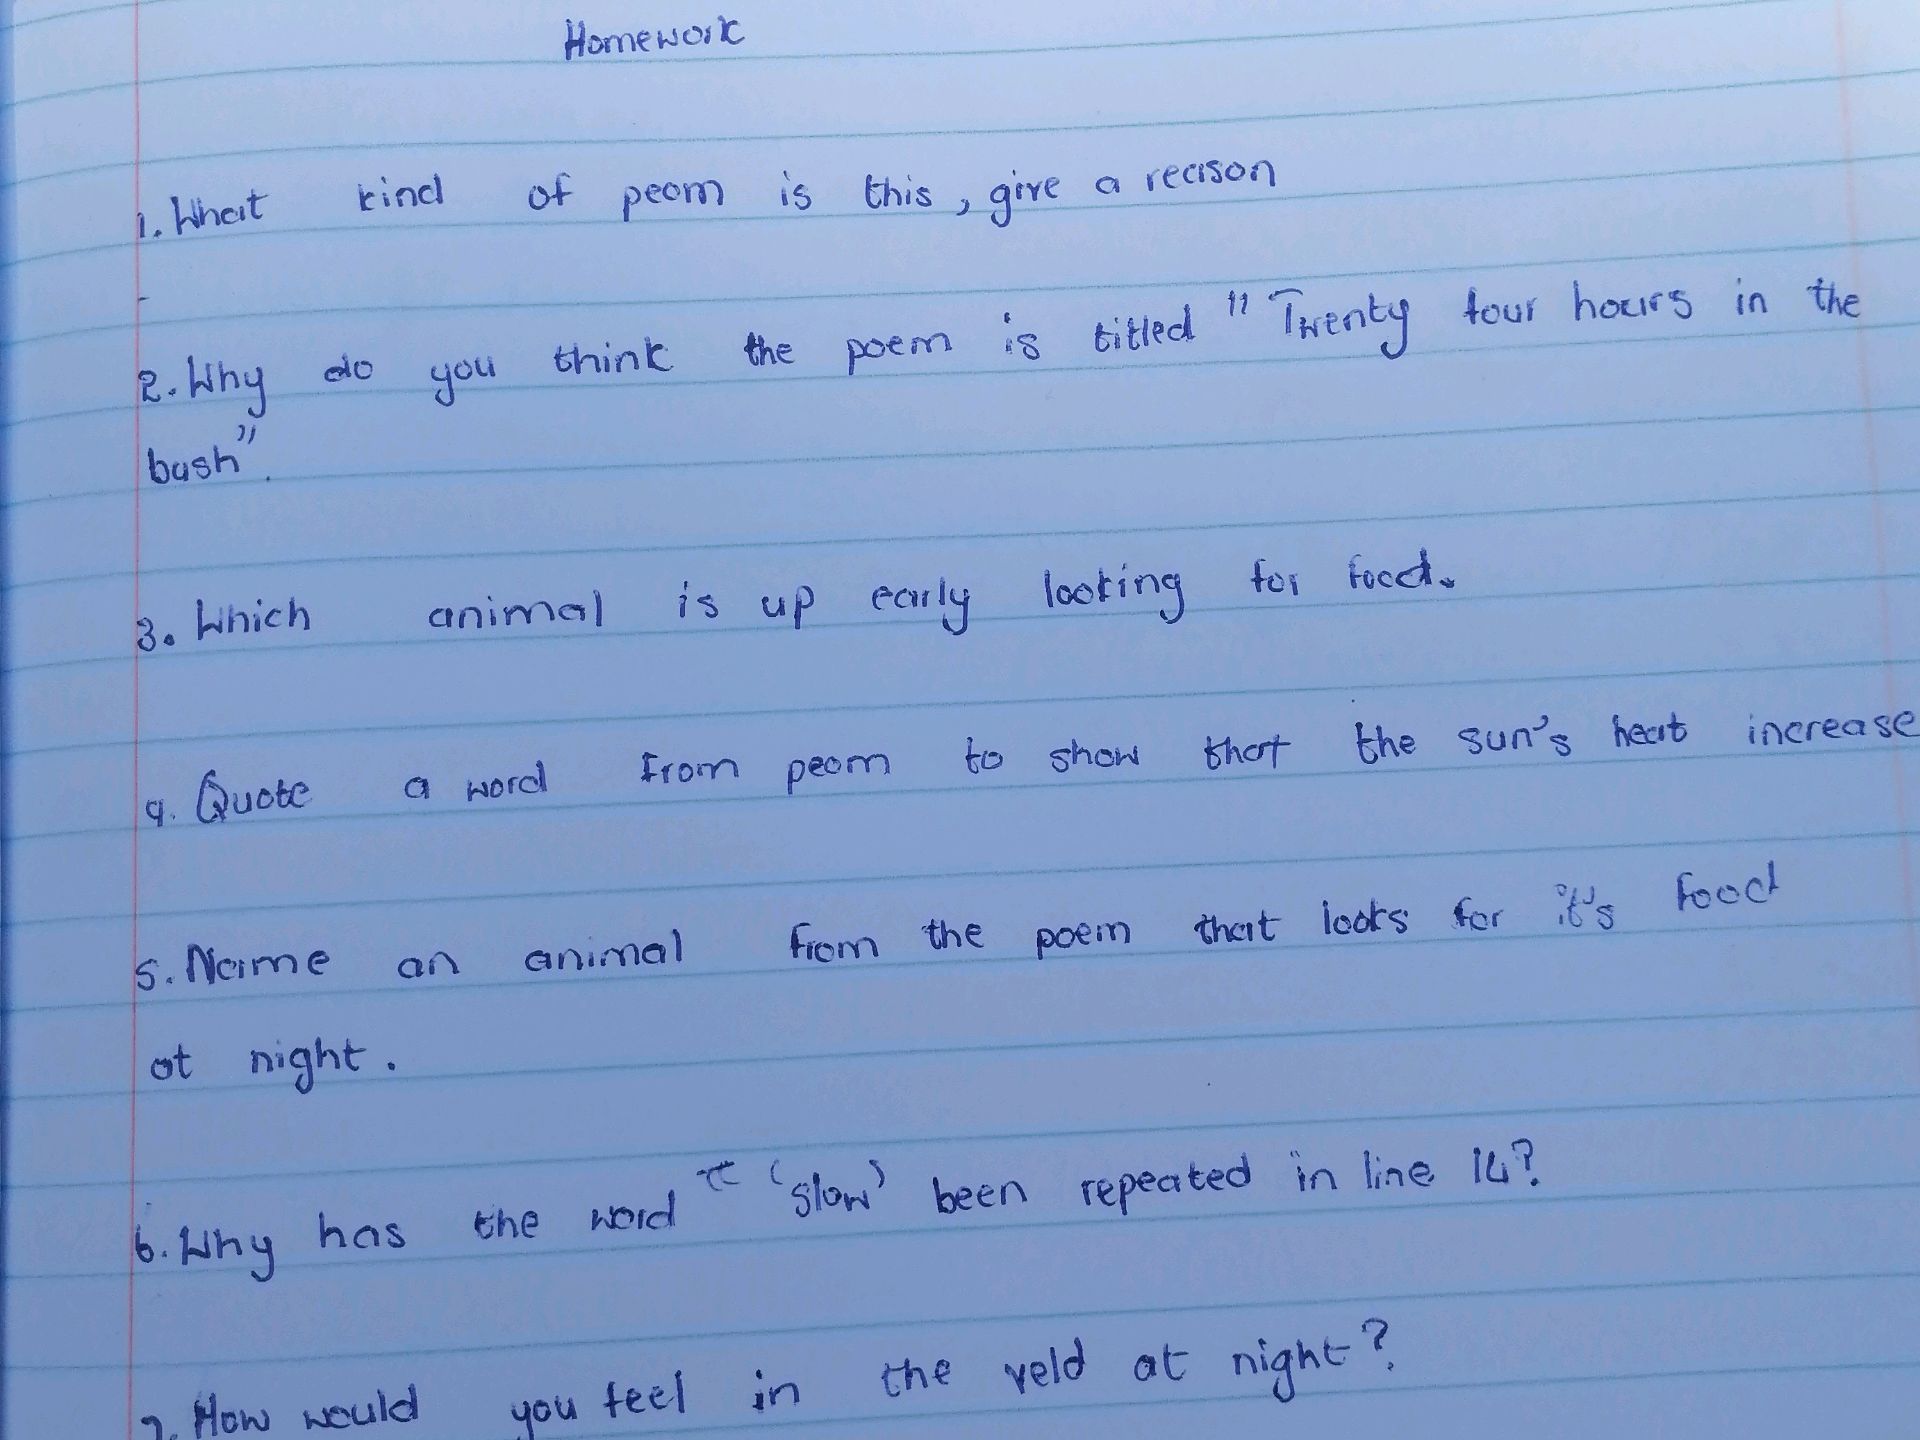 Homework
1. What kind of peom is this, give a reason
2. Why do you think the poem is titled "Twenty four hours in the
bush".
3. Which animal is up early looking for food.
4. Quote a word from peom to show that the sun's heat increase
5. Name an animal from the poem that looks for it's food
at night.
6. Why has the word 'slow' been repeated in line 14?
7. How would you feel in the veld at night?